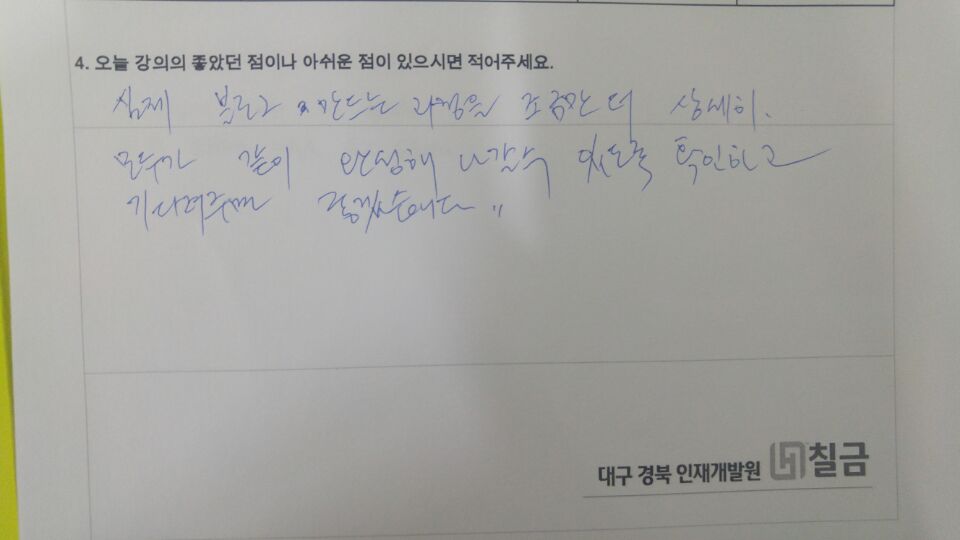 4. 오늘 강의의 좋았던 점이나 아쉬운 점이 있으시면 적어주세요.
실제 블로그 만드는 과정을 조금만 더 상세히.
모두가 같이 완성해 나갈수 있도록 확인하고
기다려주면 좋겠습니다 〃
대구 경북 인재개발원 칠금